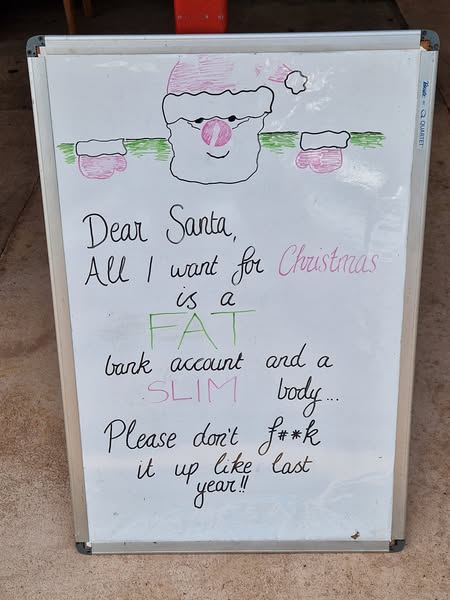 Dear Santa,
All I want for Christmas
is a
FAT
bank account and a
SLIM body...
Please don't f**k
it up like last
year!!
QUARTET